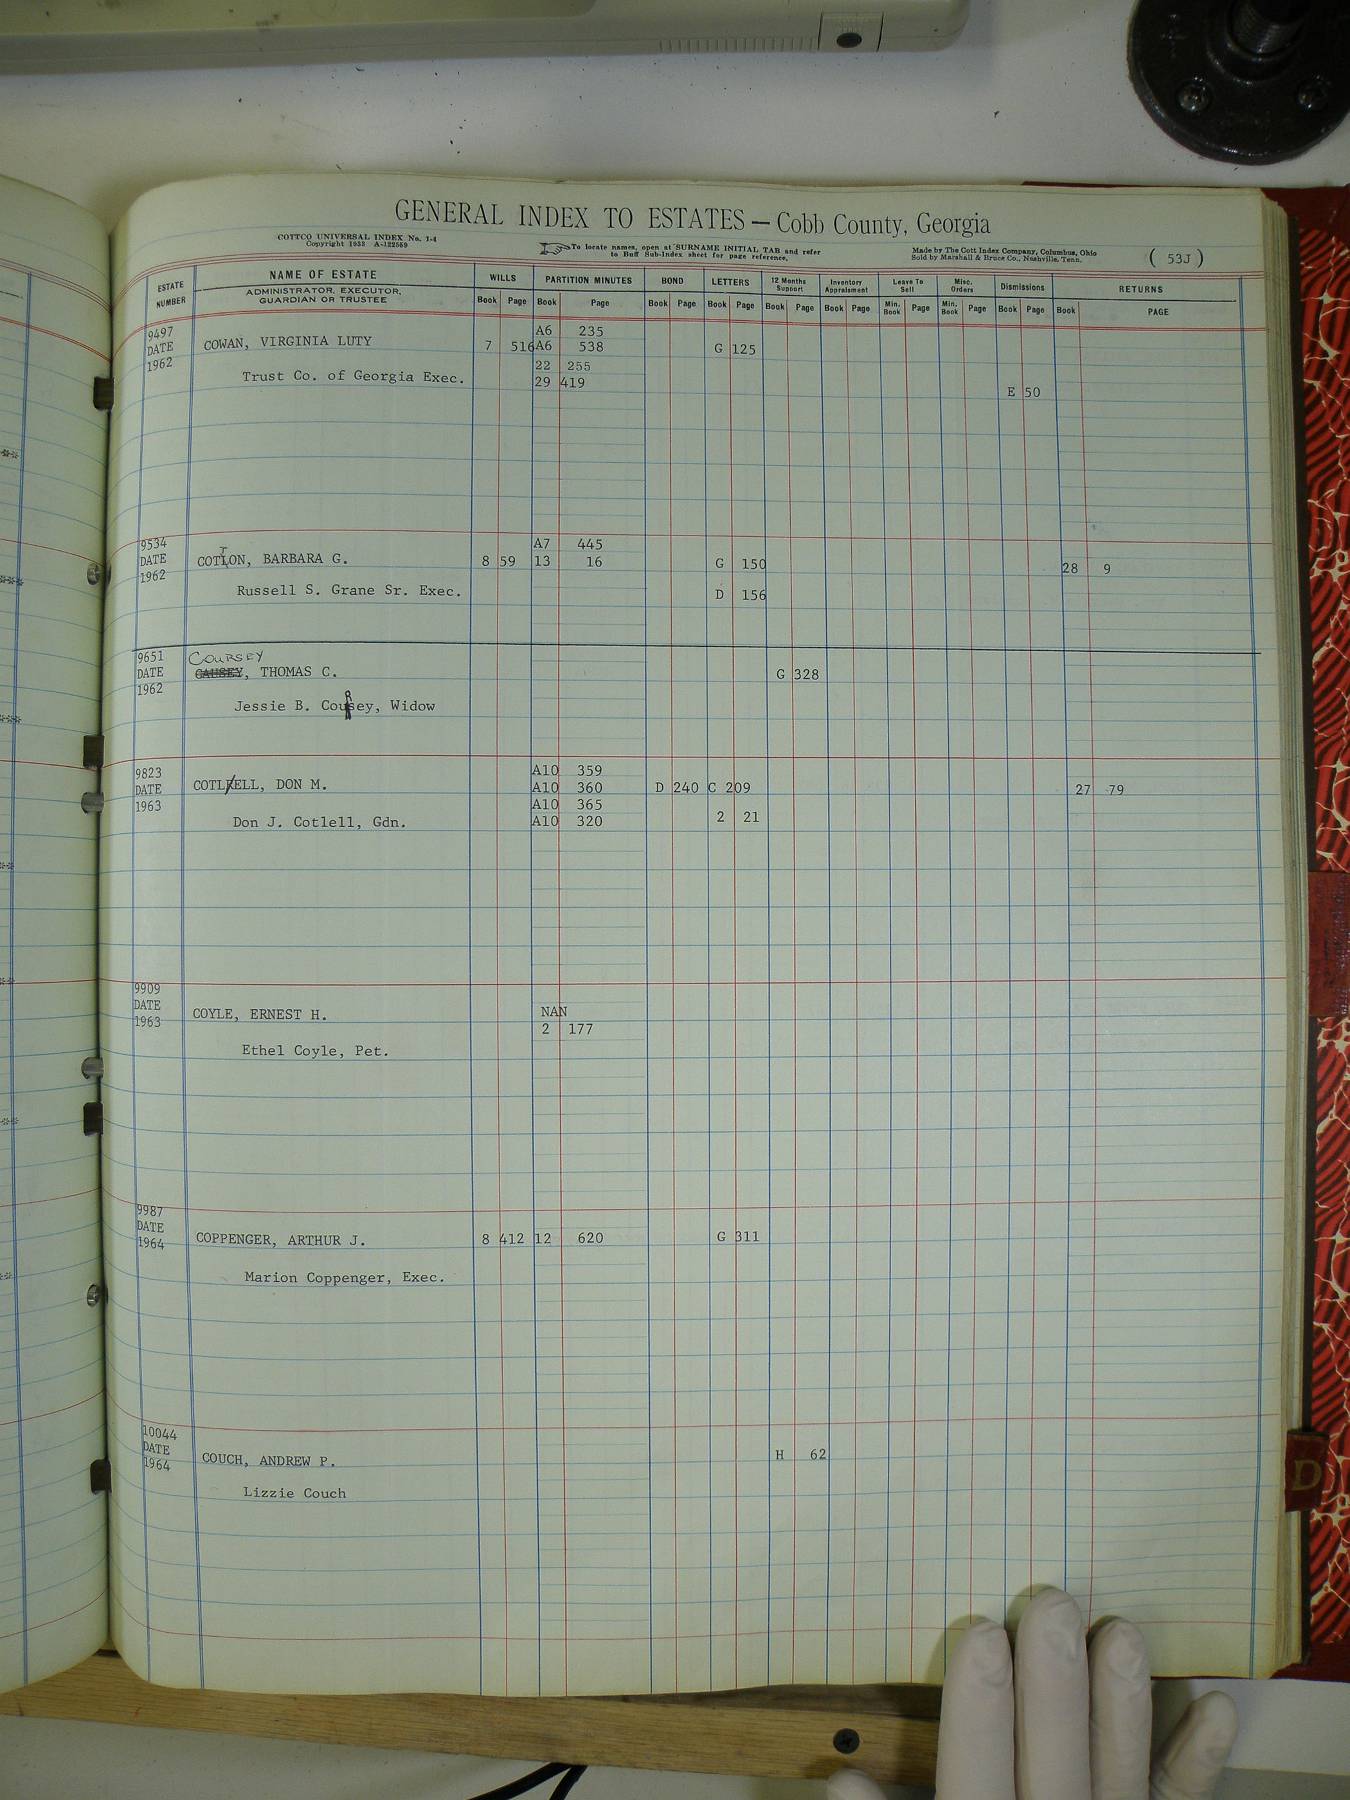 GENERAL INDEX TO ESTATES — Cobb County, Georgia
COTTCO UNIVERSAL INDEX No. 1-4
Copyright 1933 A-122559
To locate names, open at SURNAME INITIAL TAB and refer
to Buff Sub-Index sheet for page reference.
Made by The Cott Index Company, Columbus, Ohio
Sold by Marshall & Bruce Co., Nashville, Tenn.
( 53J )
ESTATE NUMBER
NAME OF ESTATE
ADMINISTRATOR, EXECUTOR,
GUARDIAN OR TRUSTEE
WILLS PARTITION MINUTES BOND LETTERS 12 Months Support Inventory Appraisment Leave To Sell Misc. Orders Dismissions RETURNS
Book Page Book Page Book Page Book Page Book Page Book Page Min. Book Page Min. Book Page Book Page Book PAGE
9497 A6 235
DATE COWAN, VIRGINIA LUTY 7 516 A6 538 G 125
1962 22 255
Trust Co. of Georgia Exec. 29 419
E 50
9534 A7 445
DATE COTTON, BARBARA G. 8 59 13 16 G 150 28 9
1962
Russell S. Grane Sr. Exec. D 156
9651 COURSEY
DATE CAUSEY, THOMAS C. G 328
1962
Jessie B. Coursey, Widow
9823 A10 359
DATE COTLELL, DON M. A10 360 D 240 C 209 27 79
1963 A10 365
Don J. Cotlell, Gdn. A10 320 2 21
9909
DATE COYLE, ERNEST H. NAN
1963 2 177
Ethel Coyle, Pet.
9987
DATE
1964 COPPENGER, ARTHUR J. 8 412 12 620 G 311
Marion Coppenger, Exec.
10044
DATE COUCH, ANDREW P. H 62
1964
Lizzie Couch
D